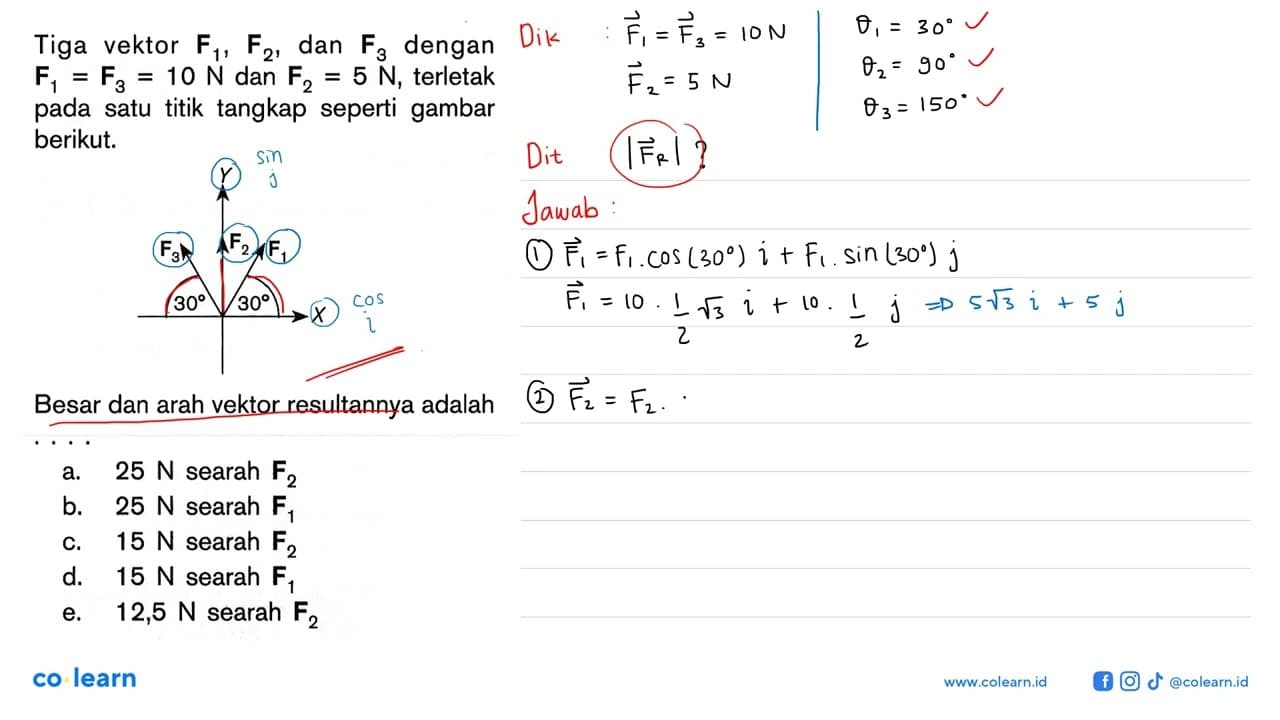 Tiga vektor F₁, F₂, dan F₃ dengan
F₁ = F₃ = 10 N dan F₂ = 5 N, terletak
pada satu titik tangkap seperti gambar
berikut.
sin
Y j
F₃ F₂ F₁
30° 30° X cos
i
Besar dan arah vektor resultannya adalah
. . . .
a. 25 N searah F₂
b. 25 N searah F₁
c. 15 N searah F₂
d. 15 N searah F₁
e. 12,5 N searah F₂
Dik : F⃗₁ = F⃗₃ = 10 N
F⃗₂ = 5 N
θ₁ = 30° ✓
θ₂ = 90° ✓
θ₃ = 150° ✓
Dit |F⃗R| ?
Jawab :
① F⃗₁ = F₁ . cos (30°) i + F₁ . sin (30°) j
F⃗₁ = 10 . 1/2 √3 i + 10 . 1/2 j ⇒ 5√3 i + 5 j
② F⃗₂ = F₂ . .
co learn
www.colearn.id
@colearn.id